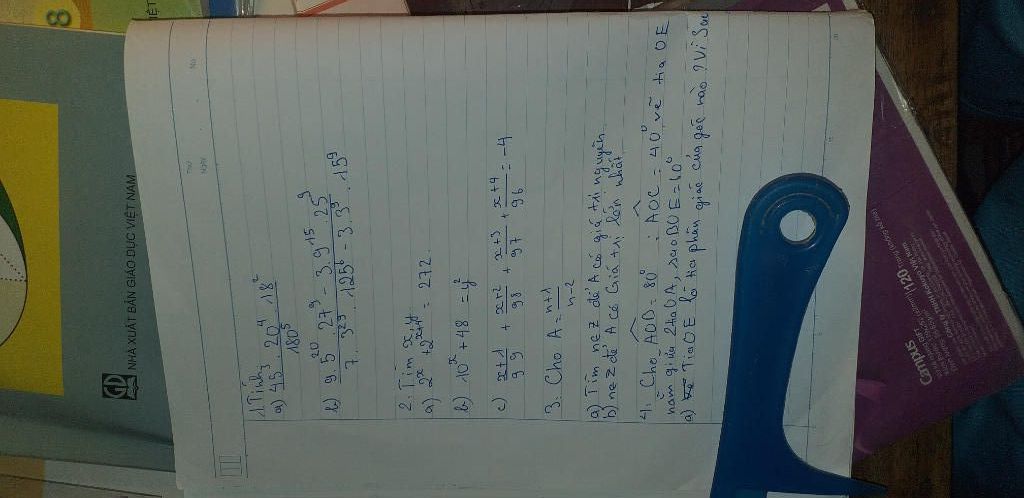 8
NHÀ XUẤT BẢN GIÁO DỤC VIỆT NAM
GD
Thứ
Ngày
No
1 Tính
a) 45 . 20^4 . 18^2 / 180^5
b) 9 . 5^20 . 27^9 - 3 . 9^15 . 25^9 / 7 . 3^29 . 125^6 - 3 . 3^9 . 15^9
2. Tìm x, y
a) 2^x + 2^{x+4} = 272
b) 10^x + 48 = y^2
c) x+1/99 + x+2/98 + x+3/97 + x+4/96 = -4
3. Cho A = n+1/n-2
a) Tìm n∈Z để A có giá trị nguyên
b) n∈Z để A có Giá trị lớn nhất
4. Cho AOB = 80° . AOC = 40° vẽ tia OE
nằm giữa 2 tia OA, sao BOE = 60°
a) Tia OE là tia phân giác của góc nào ? Vì Sao
Campus
120